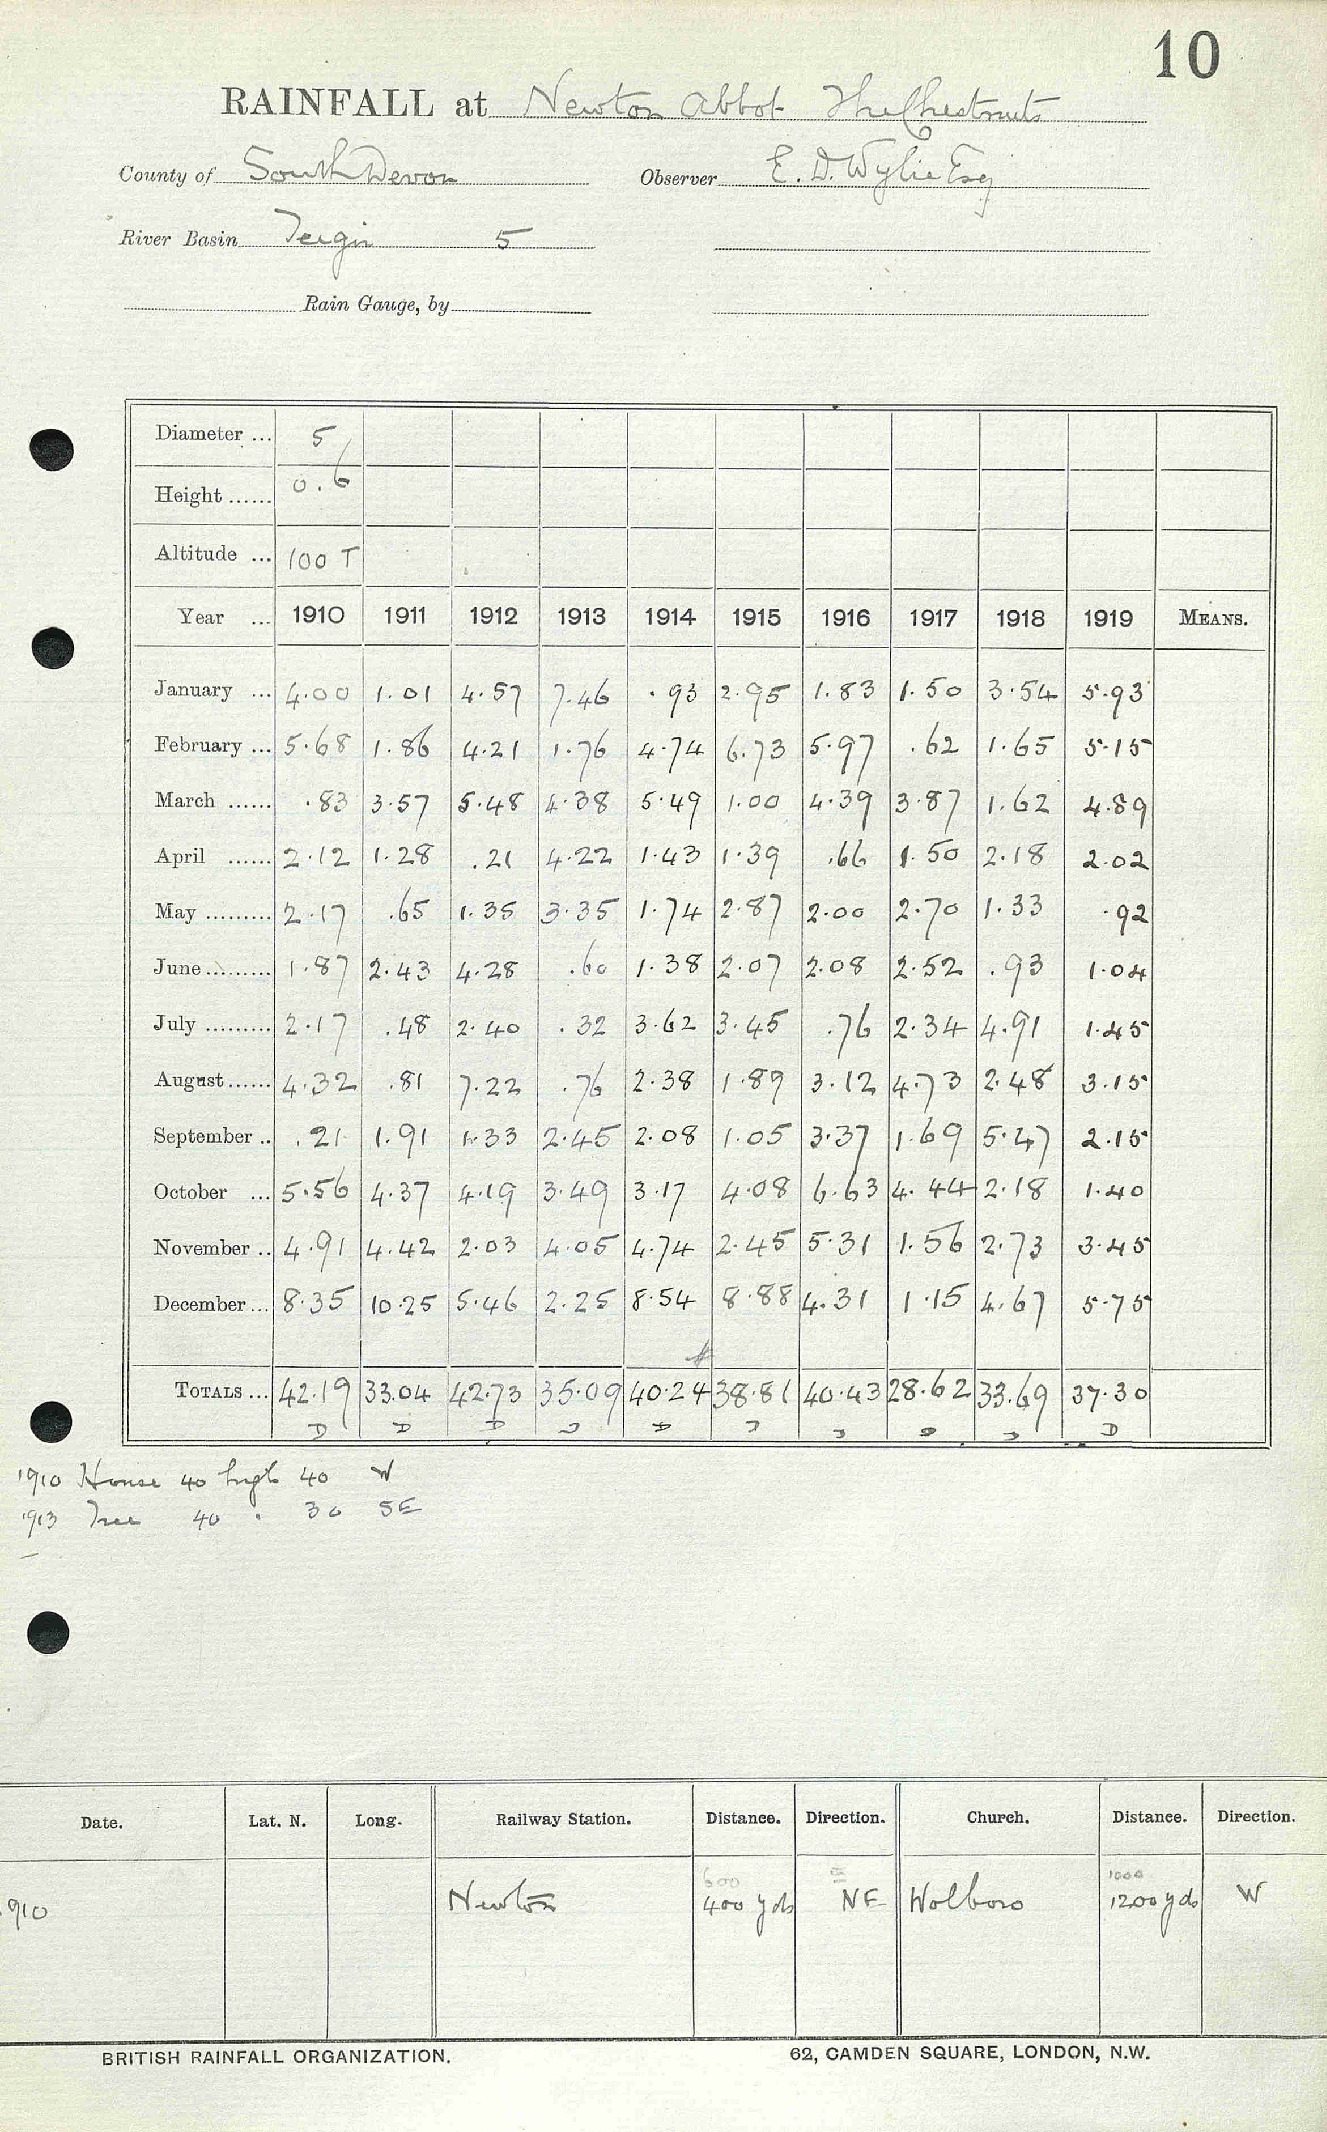 10
RAINFALL at Newton Abbot The Chestnuts
County of South Devon Observer E. D. Wylie Esq
River Basin Teign 5
Rain Gauge, by
Diameter ... 5
Height ...... 0.6
Altitude ... 100 T
Year ... 1910 1911 1912 1913 1914 1915 1916 1917 1918 1919 MEANS.
January ... 4.00 1.01 4.57 7.46 .93 2.95 1.83 1.50 3.54 5.93
February ... 5.68 1.86 4.21 1.76 4.74 6.73 5.97 .62 1.65 5.15
March ...... .83 3.57 5.48 4.38 5.49 1.00 4.39 3.87 1.62 4.89
April ...... 2.12 1.28 .21 4.22 1.43 1.39 .66 1.50 2.18 2.02
May ......... 2.17 .65 1.35 3.35 1.74 2.87 2.00 2.70 1.33 .92
June ......... 1.87 2.43 4.28 .60 1.38 2.07 2.08 2.52 .93 1.04
July ......... 2.17 .48 2.40 .32 3.62 3.45 .76 2.34 4.91 1.45
August ...... 4.32 .81 7.22 .76 2.38 1.89 3.12 4.73 2.48 3.15
September .. .21 1.91 1.33 2.45 2.08 1.05 3.37 1.69 5.47 2.15
October ... 5.56 4.37 4.19 3.49 3.17 4.08 6.63 4.44 2.18 1.40
November .. 4.91 4.42 2.03 4.05 4.74 2.45 5.31 1.56 2.73 3.45
December ... 8.35 10.25 5.46 2.25 8.54 8.88 4.31 1.15 4.67 5.75
TOTALS ... 42.19 33.04 42.73 35.09 40.24 38.81 40.43 28.62 33.69 37.30
D D D D D D D D D D
1910 House 40 high 40 W
1913 Tree 40 " 30 SE
Date. Lat. N. Long. Railway Station. Distance. Direction. Church. Distance. Direction.
600 1000
1910 Newton 400 yds NE Wolboro 1200 yds W
BRITISH RAINFALL ORGANIZATION. 62, CAMDEN SQUARE, LONDON, N.W.